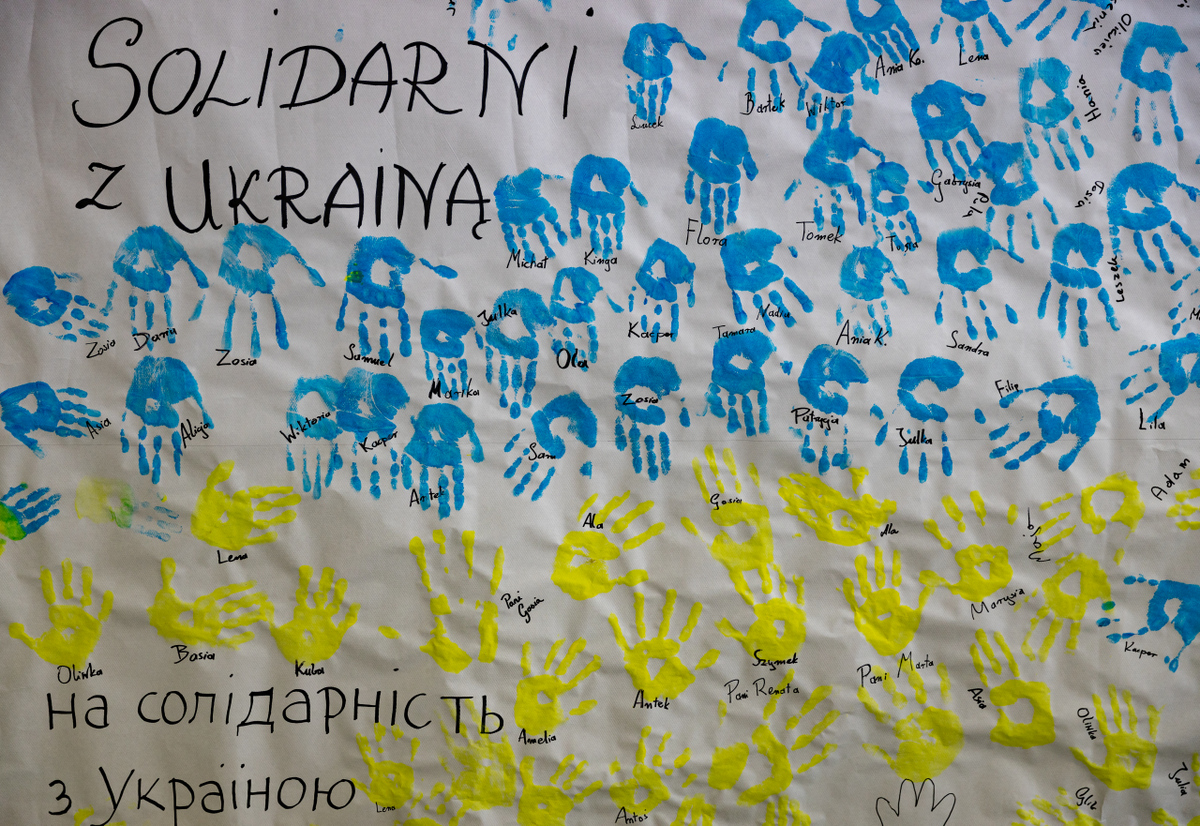 SOLIDARNI
Z UKRAINĄ
Lucek
Bartek
Wiktor
Ania Ko.
Lena
Oliwier
Hania
Gabrysia
Tosia
Michał
Kinga
Flora
Tomek
Tusia
Leszek
Zosia
Daria
Zosia
Samuel
Julka
Marika
Ola
Kacper
Tamara
Nadia
Ania K.
Sandra
Asia
Alicja
Wiktoria
Kacper
Antek
Sam
Zosia
Patrycja
Julka
Filip
Lila
Lena
Ala
Gosia
Ala
Adam
Maja
Olinka
Basia
Kuba
Pani
Gosia
Szymek
Marysia
Kacper
на солідарність
з Україною
Amelia
Antek
Pani Renata
Pani Marta
Asia
Olinka
Julia
Lena
Antoś